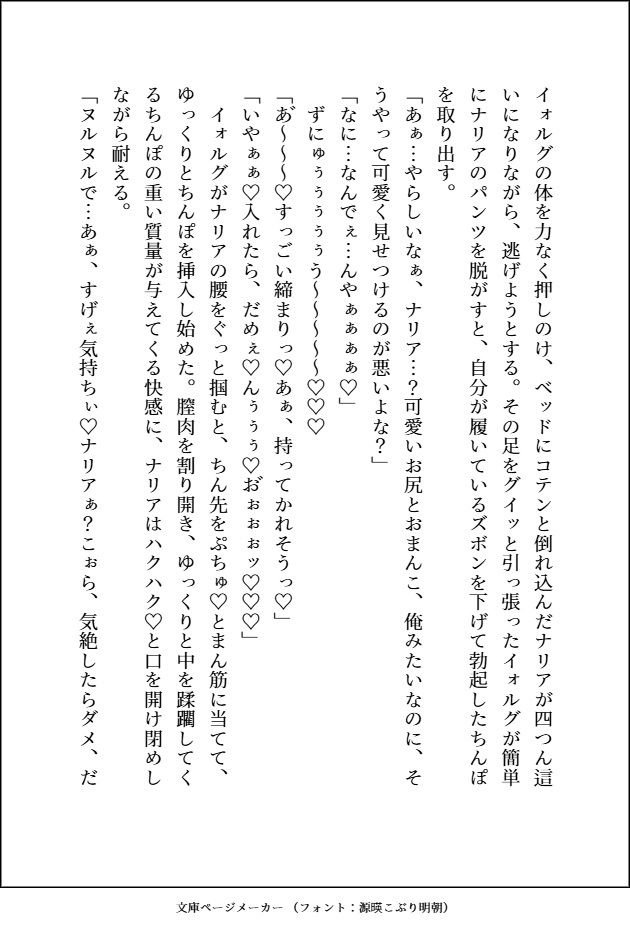 イォルグの体を力なく押しのけ、ベッドにコテンと倒れ込んだナリアが四つん這
いになりながら、逃げようとする。その足をグイッと引っ張ったイォルグが簡単
にナリアのパンツを脱がすと、自分が履いているズボンを下げて勃起したちんぽ
を取り出す。
「あぁ…やらしいなぁ、ナリア…？可愛いお尻とおまんこ、俺みたいなのに、そ
うやって可愛く見せつけるのが悪いよな？」
「なに…なんでぇ…んやぁぁぁぁ♡」
ずにゅぅぅぅぅぅう〜〜〜〜〜♡♡♡
「あ゛〜〜〜♡すっごい締まりっ♡あぁ、持ってかれそうっ♡」
「いやぁぁ♡入れたら、だめぇ♡んぅぅぅ♡お゛ぉぉぉッ♡♡♡」
イォルグがナリアの腰をぐっと掴むと、ちん先をぷちゅ♡とまん筋に当てて、
ゆっくりとちんぽを挿入し始めた。膣肉を割り開き、ゆっくりと中を蹂躙してく
るちんぽの重い質量が与えてくる快感に、ナリアはハクハク♡と口を開け閉めし
ながら耐える。
「ヌルヌルで…あぁ、すげぇ気持ちぃ♡ナリアぁ？こぉら、気絶したらダメ、だ
文庫ページメーカー （フォント：源暎こぶり明朝）